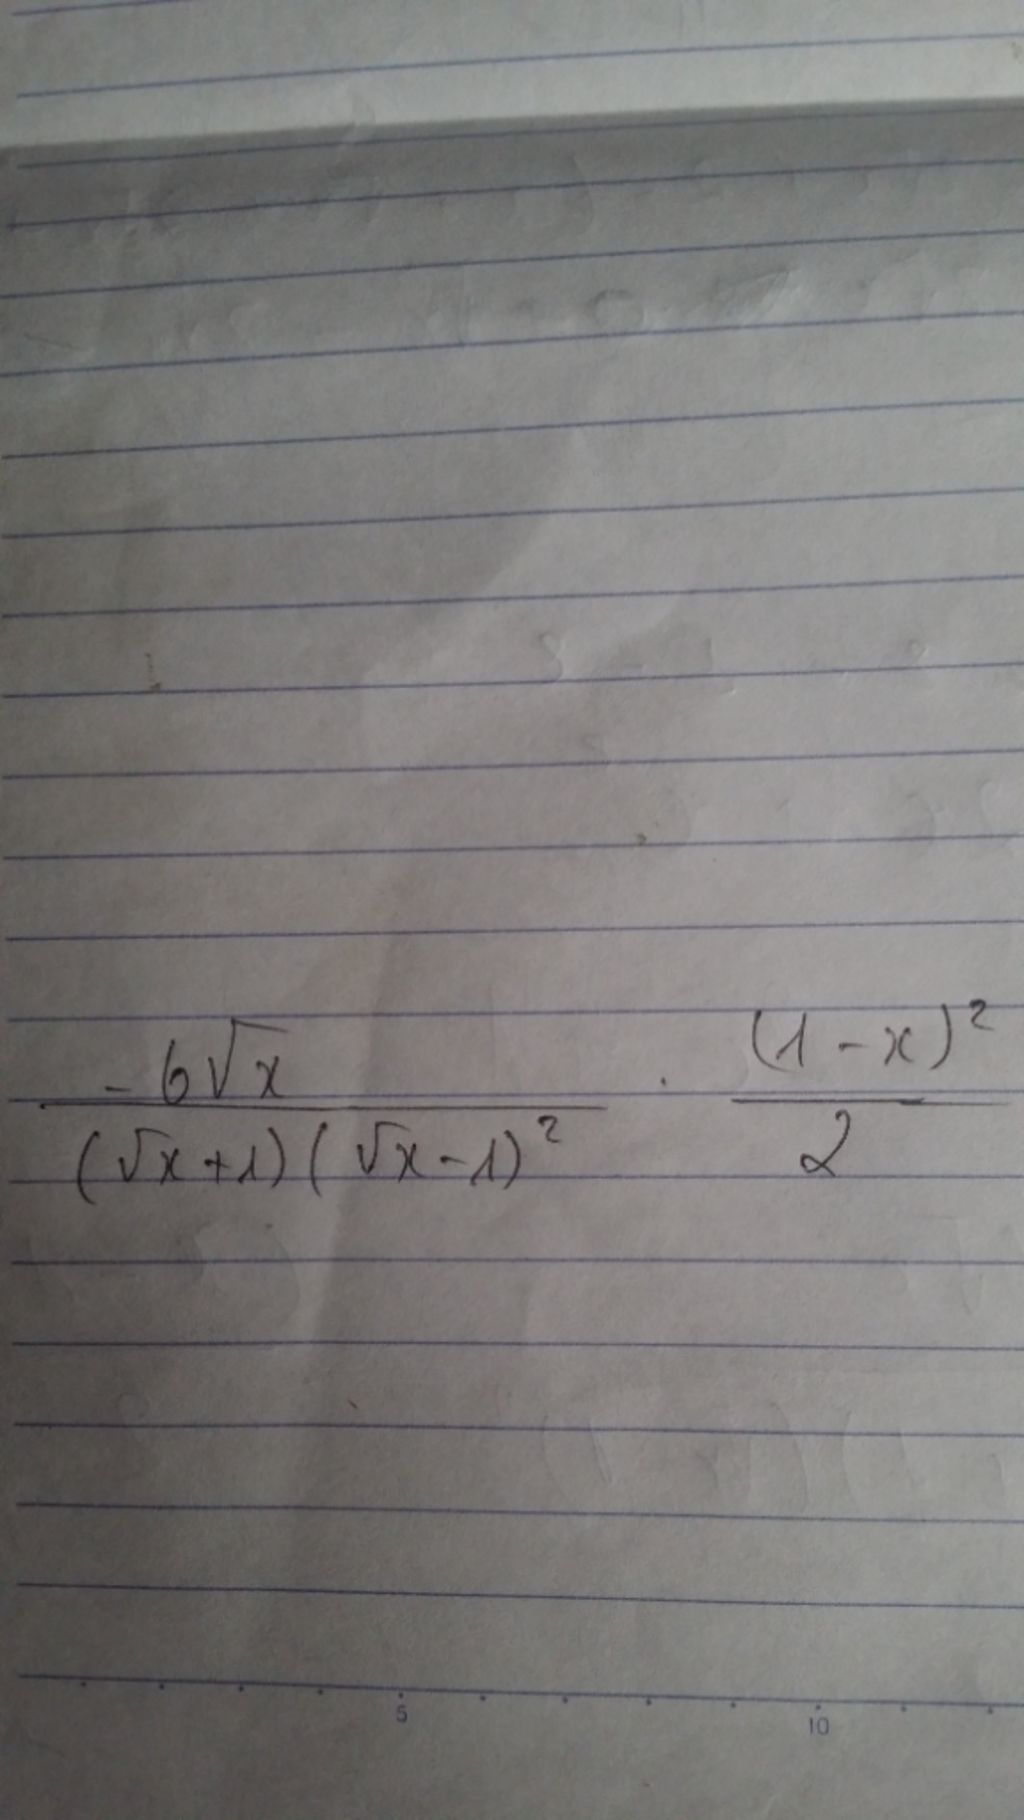 -6√x / (√x+1)(√x-1)² · (1-x)² / 2
5 10